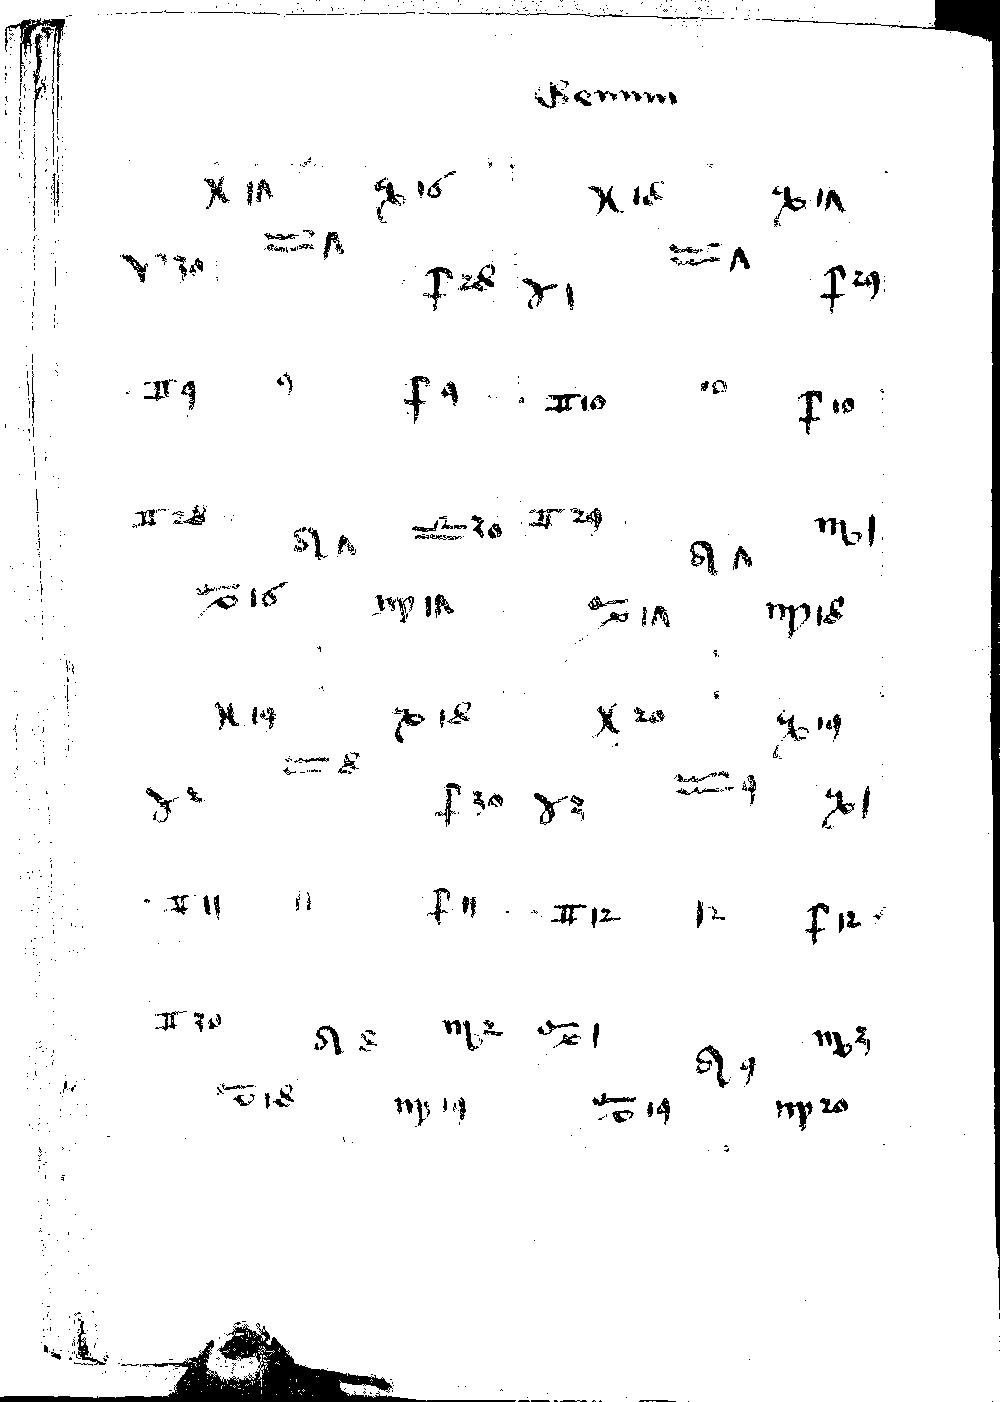 Gemini
♓ 17 ♑ 16 ♓ 18 ♑ 17
♒ 7 ♒ 7
♈ 30 ♐ 28 ♉ 1 ♐ 29
♊ 9 9 ♐ 9 ♊ 10 10 ♐ 10
♊ 28 ♎ 30 ♊ 29 ♏ 1
♌ 7 ♌ 7
♋ 16 ♍ 17 ♋ 17 ♍ 18
♓ 19 ♑ 18 ♓ 20 ♑ 19
♒ 8 ♒ 9
♉ 2 ♐ 30 ♉ 3 ♑ 1
♊ 11 11 ♐ 11 ♊ 12 12 ♐ 12
♊ 30 ♏ 2 ♋ 1 ♏ 3
♌ 8 ♌ 9
♋ 18 ♍ 19 ♋ 19 ♍ 20